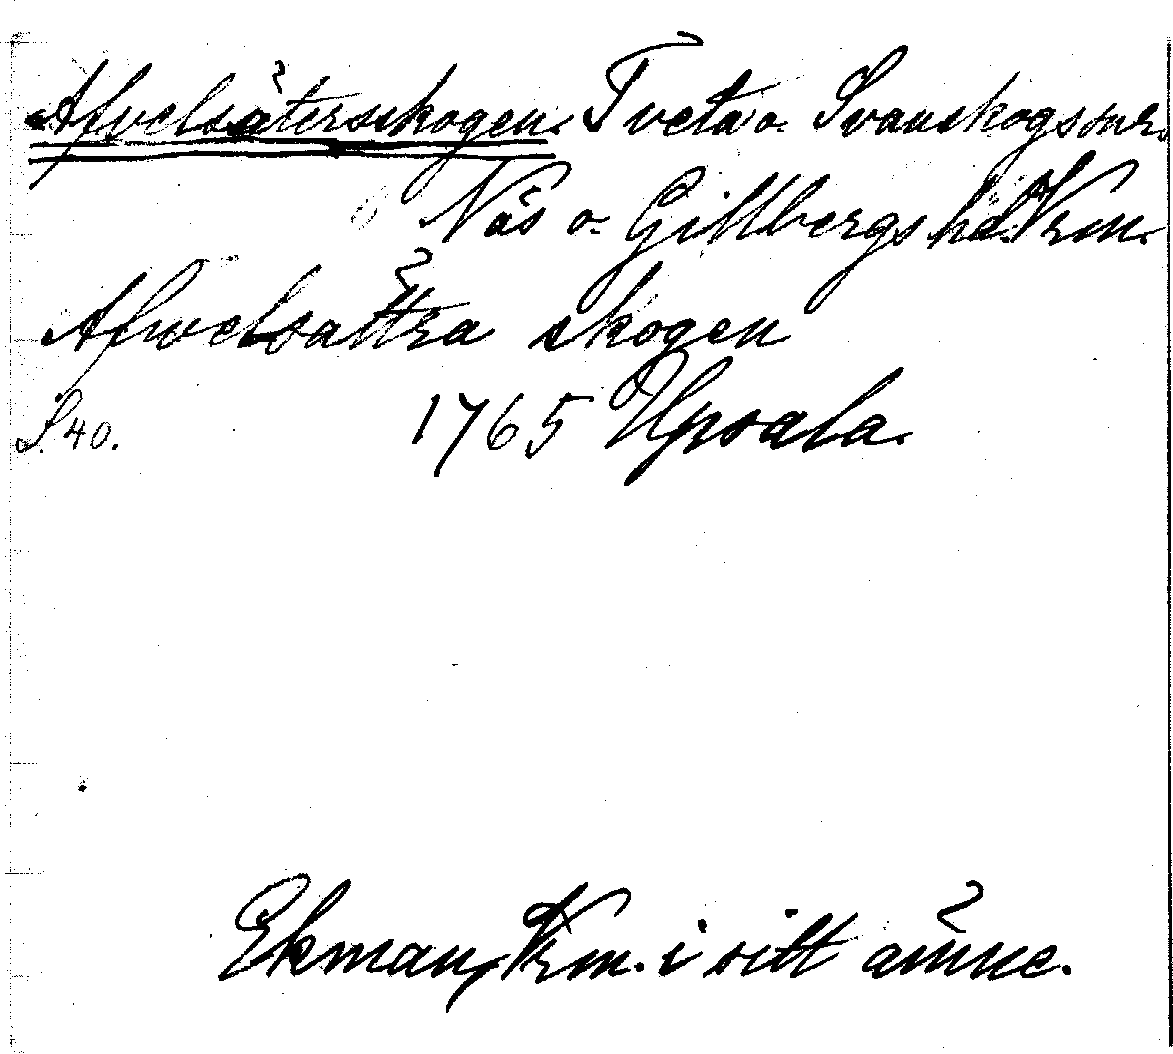 Afvelsäterskogen. Tveta o. Svanskogs snr.
Näs o. Gillbergs hd. Vrm.
Afwelsättra skogen
S. 40. 1765 Upsala.
Ekman, Vrm. i sitt ämne.